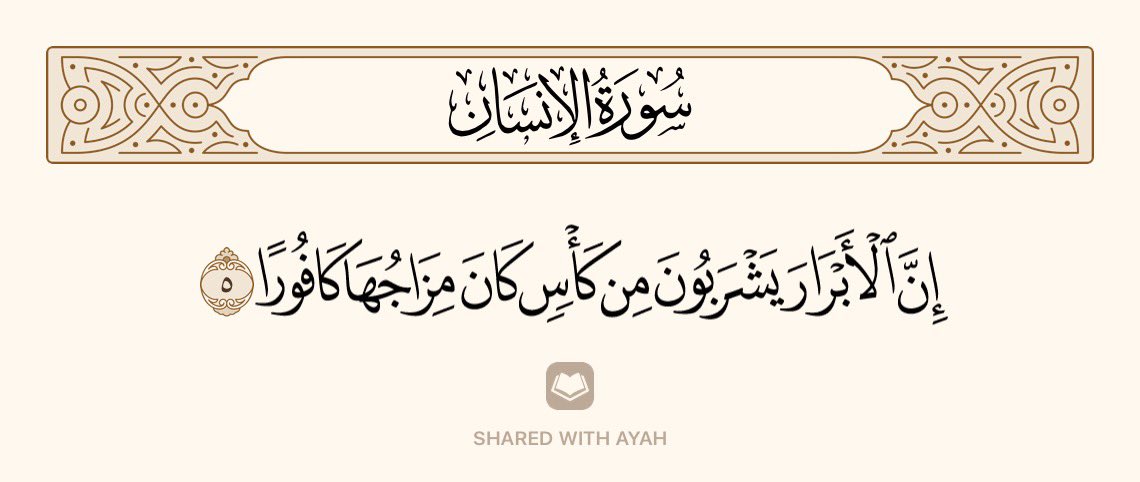 سُورَةُ الإِنسَانِ
إِنَّ ٱلْأَبْرَارَ يَشْرَبُونَ مِن كَأْسٍ كَانَ مِزَاجُهَا كَافُورًا ٥
SHARED WITH AYAH